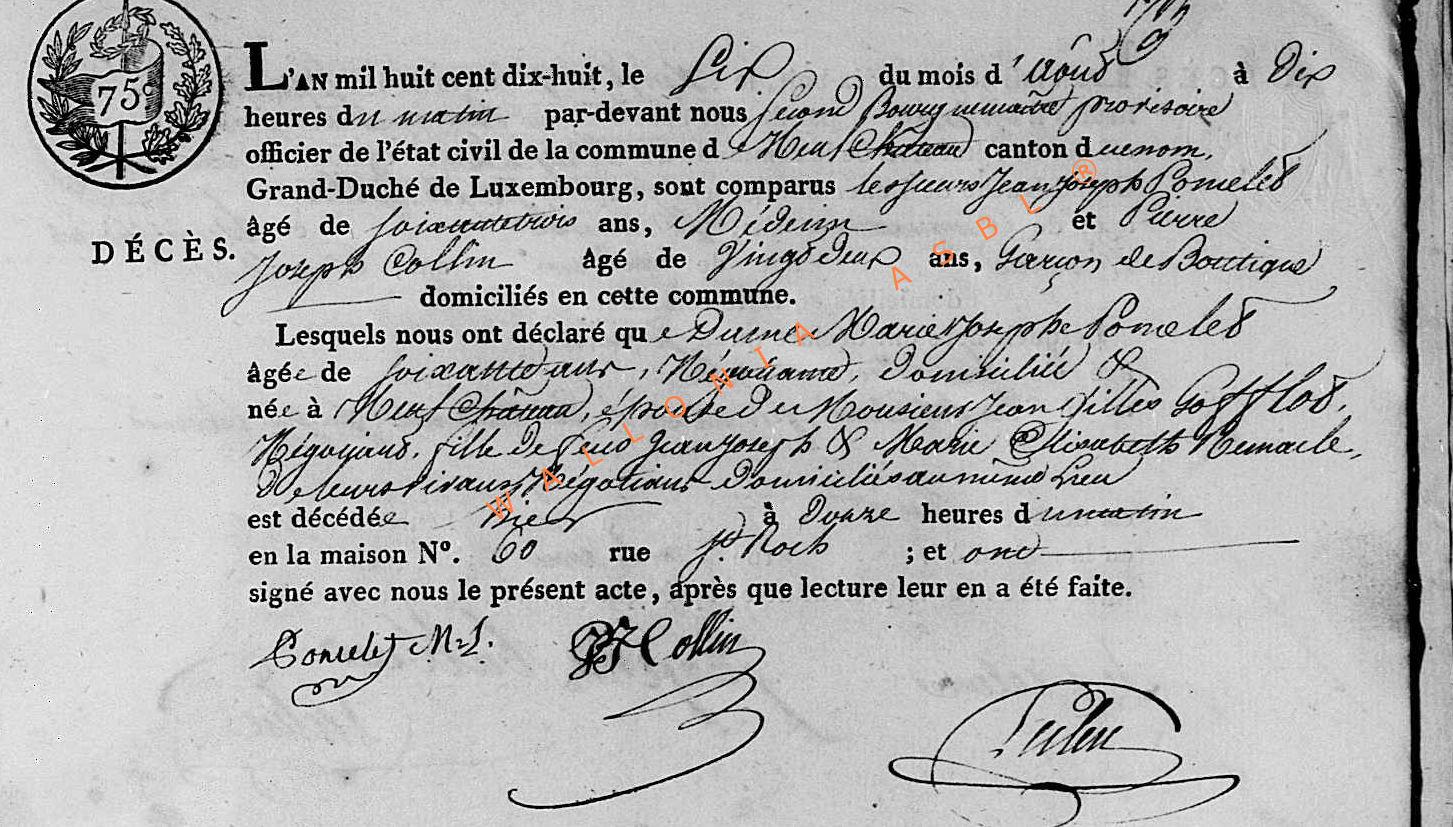 75c
L'AN mil huit cent dix-huit, le Six du mois d'Aôut à Dix
heures du matin par-devant nous second Bourguemaitre provisoire
officier de l'état civil de la commune de Neufchâteau canton du e nom,
Grand-Duché de Luxembourg, sont comparus les sieurs Jean Joseph Poncelet
âgé de soixante trois ans, Médecin et Pierre
DÉCÈS.
Joseph Collin âgé de Vingt Deux ans, Garçon de Boutique
domiciliés en cette commune.
Lesquels nous ont déclaré que Dame Marie Josephe Poncelet
âgée de soixante ans, Négociante, domiciliée &
née à Neufchâteau, épouse de Monsieur Jean Gilles Gofflot,
Négociant, fille de feus Jean Joseph & Marie Elisabeth Remacle,
de leurs vivans Négotians domiciliés au même Lieu
est décédée hier à Douze heures du matin
en la maison N°. 60 rue St Roch ; et ont
signé avec nous le présent acte, après que lecture leur en a été faite.
Poncelet M.D. PJ Collin
WALLONIA ASBL ®